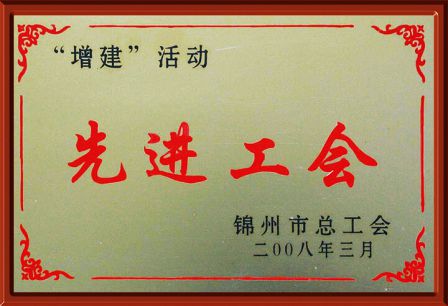 “增建”活动
先进工会
锦州市总工会
二00八年三月